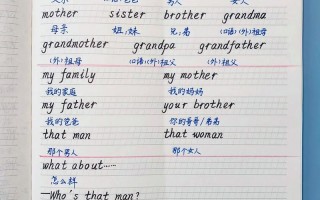 父亲 (口语)爸爸 男人 女人
mother sister brother grandma
母亲 姐;妹 兄;弟 (口语)(外)祖母
grandmother grandpa grandfather
(外)祖母 (口语)(外)祖父 (外)祖父
my family my mother
我的家庭 我的妈妈
my father your brother
我的爸爸 你的哥哥/弟弟
that man that woman
那个男人 那个女人
what about……
怎么样
—Who's that man?